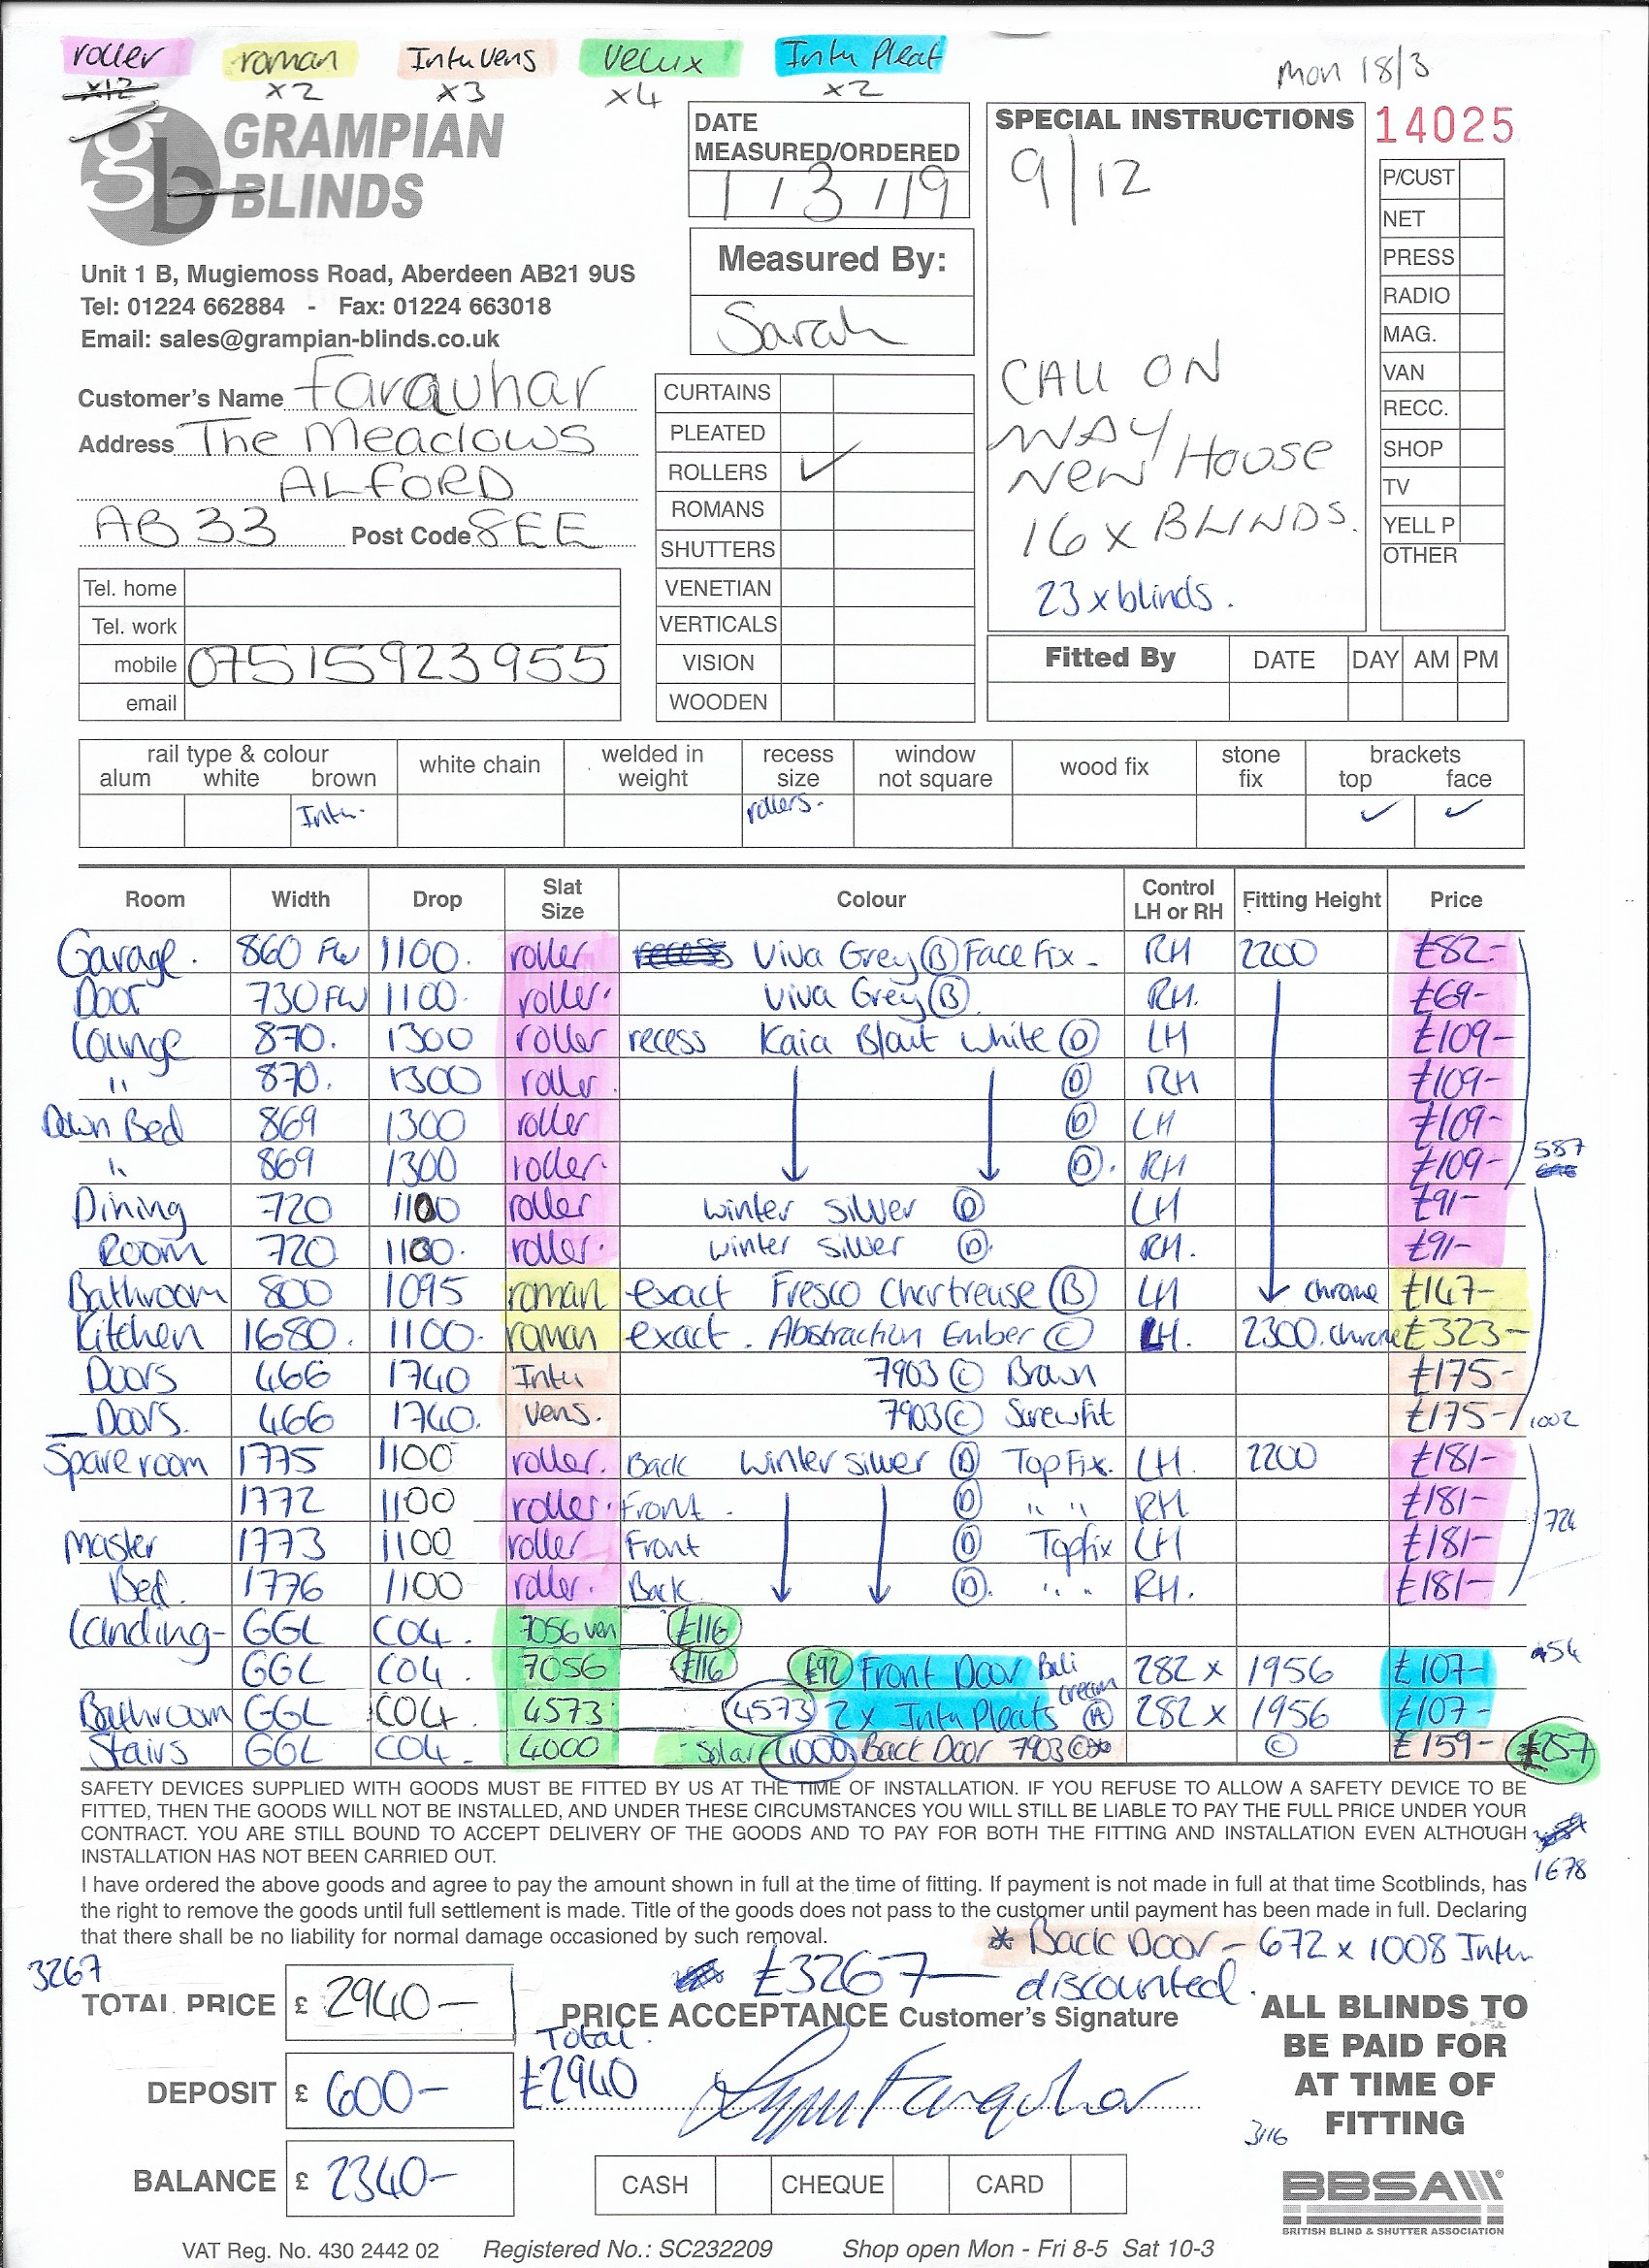 roller roman Intu Vens Velux Intu Pleat
x12 x2 x3 x4 x2
Mon 18/3
GRAMPIAN
BLINDS
DATE
MEASURED/ORDERED
1 / 3 / 19
SPECIAL INSTRUCTIONS
14025
9/12
Measured By:
Sarah
Unit 1 B, Mugiemoss Road, Aberdeen AB21 9US
Tel: 01224 662884 - Fax: 01224 663018
Email: sales@grampian-blinds.co.uk
Customer's Name Farquhar
Address The Meadows
ALFORD
AB33 Post Code 8EE
Tel. home
Tel. work
mobile 07515923955
email
CURTAINS
PLEATED
ROLLERS ✓
ROMANS
SHUTTERS
VENETIAN
VERTICALS
VISION
WOODEN
CALL ON
WAY
NEW HOUSE
16 x BLINDS.
23 x blinds.
P/CUST
NET
PRESS
RADIO
MAG.
VAN
RECC.
SHOP
TV
YELL P
OTHER
Fitted By DATE DAY AM PM
rail type & colour white chain welded in weight recess size window not square wood fix stone fix brackets
alum white brown top face
Intu. rollers. ✓ ✓
Room Width Drop Slat Size Colour Control LH or RH Fitting Height Price
Garage. 860 FW 1100. roller recess Viva Grey (B) Face Fix - RH 2200 £82-
Door 730 FW 1100. roller. Viva Grey (B) RH. £69-
Lounge 870. 1300 roller recess Kaia Blout White (D) LH £109-
" 870. 1300 roller. (D) RH £109-
Down Bed 869 1300 roller (D) LH £109-
" 869 1300 roller. (D). RH £109- 587
Dining 720 1100 roller winter silver (D) LH £91-
Room 720 1100. roller. winter silver (D). RH. £91-
Bathroom 800 1095 roman exact Fresco Chartreuse (B) LH chrome £147-
Kitchen 1680. 1100. roman exact. Abstraction Ember (C) LH. 2300. chrome £323-
Doors 466 1740 Intu 7903 (C) Brown £175-
Doors. 466 1740. Vens. 7903 (C) Screwfit £175- 1002
Spare room 1775 1100 roller. Back Winter silver (D) Top Fix. LH. 2200 £181-
1772 1100 roller. Front. (D) " " RH £181- 724
Master 1773 1100 roller Front (D) Topfix LH £181-
Bed. 1776 1100 roller. Back (D). " " RH. £181-
Landing- GGL C04. 7056 ven £116
GGL C04. 7056 £116 £92 Front Door Bali cream 282 x 1956 £107- 954
Bathroom GGL C04. 4573 4573 2 x Intu Pleats (A) 282 x 1956 £107-
Stairs GGL C04. 4000 Solar 4000 Back Door 7903 (C)* (C) £159- £257
SAFETY DEVICES SUPPLIED WITH GOODS MUST BE FITTED BY US AT THE TIME OF INSTALLATION. IF YOU REFUSE TO ALLOW A SAFETY DEVICE TO BE
FITTED, THEN THE GOODS WILL NOT BE INSTALLED, AND UNDER THESE CIRCUMSTANCES YOU WILL STILL BE LIABLE TO PAY THE FULL PRICE UNDER YOUR
CONTRACT. YOU ARE STILL BOUND TO ACCEPT DELIVERY OF THE GOODS AND TO PAY FOR BOTH THE FITTING AND INSTALLATION EVEN ALTHOUGH
INSTALLATION HAS NOT BEEN CARRIED OUT.
1678
I have ordered the above goods and agree to pay the amount shown in full at the time of fitting. If payment is not made in full at that time Scotblinds, has
the right to remove the goods until full settlement is made. Title of the goods does not pass to the customer until payment has been made in full. Declaring
that there shall be no liability for normal damage occasioned by such removal.
* Back Door - 672 x 1008 Intu
discounted.
3267
£3267-
TOTAL PRICE £ 2940-
PRICE ACCEPTANCE Customer's Signature
Total.
£2940
Lynn Farquhar
DEPOSIT £ 600-
BALANCE £ 2340-
CASH CHEQUE CARD
ALL BLINDS TO
BE PAID FOR
AT TIME OF
FITTING
3116
BBSA
BRITISH BLIND & SHUTTER ASSOCIATION
VAT Reg. No. 430 2442 02 Registered No.: SC232209 Shop open Mon - Fri 8-5 Sat 10-3